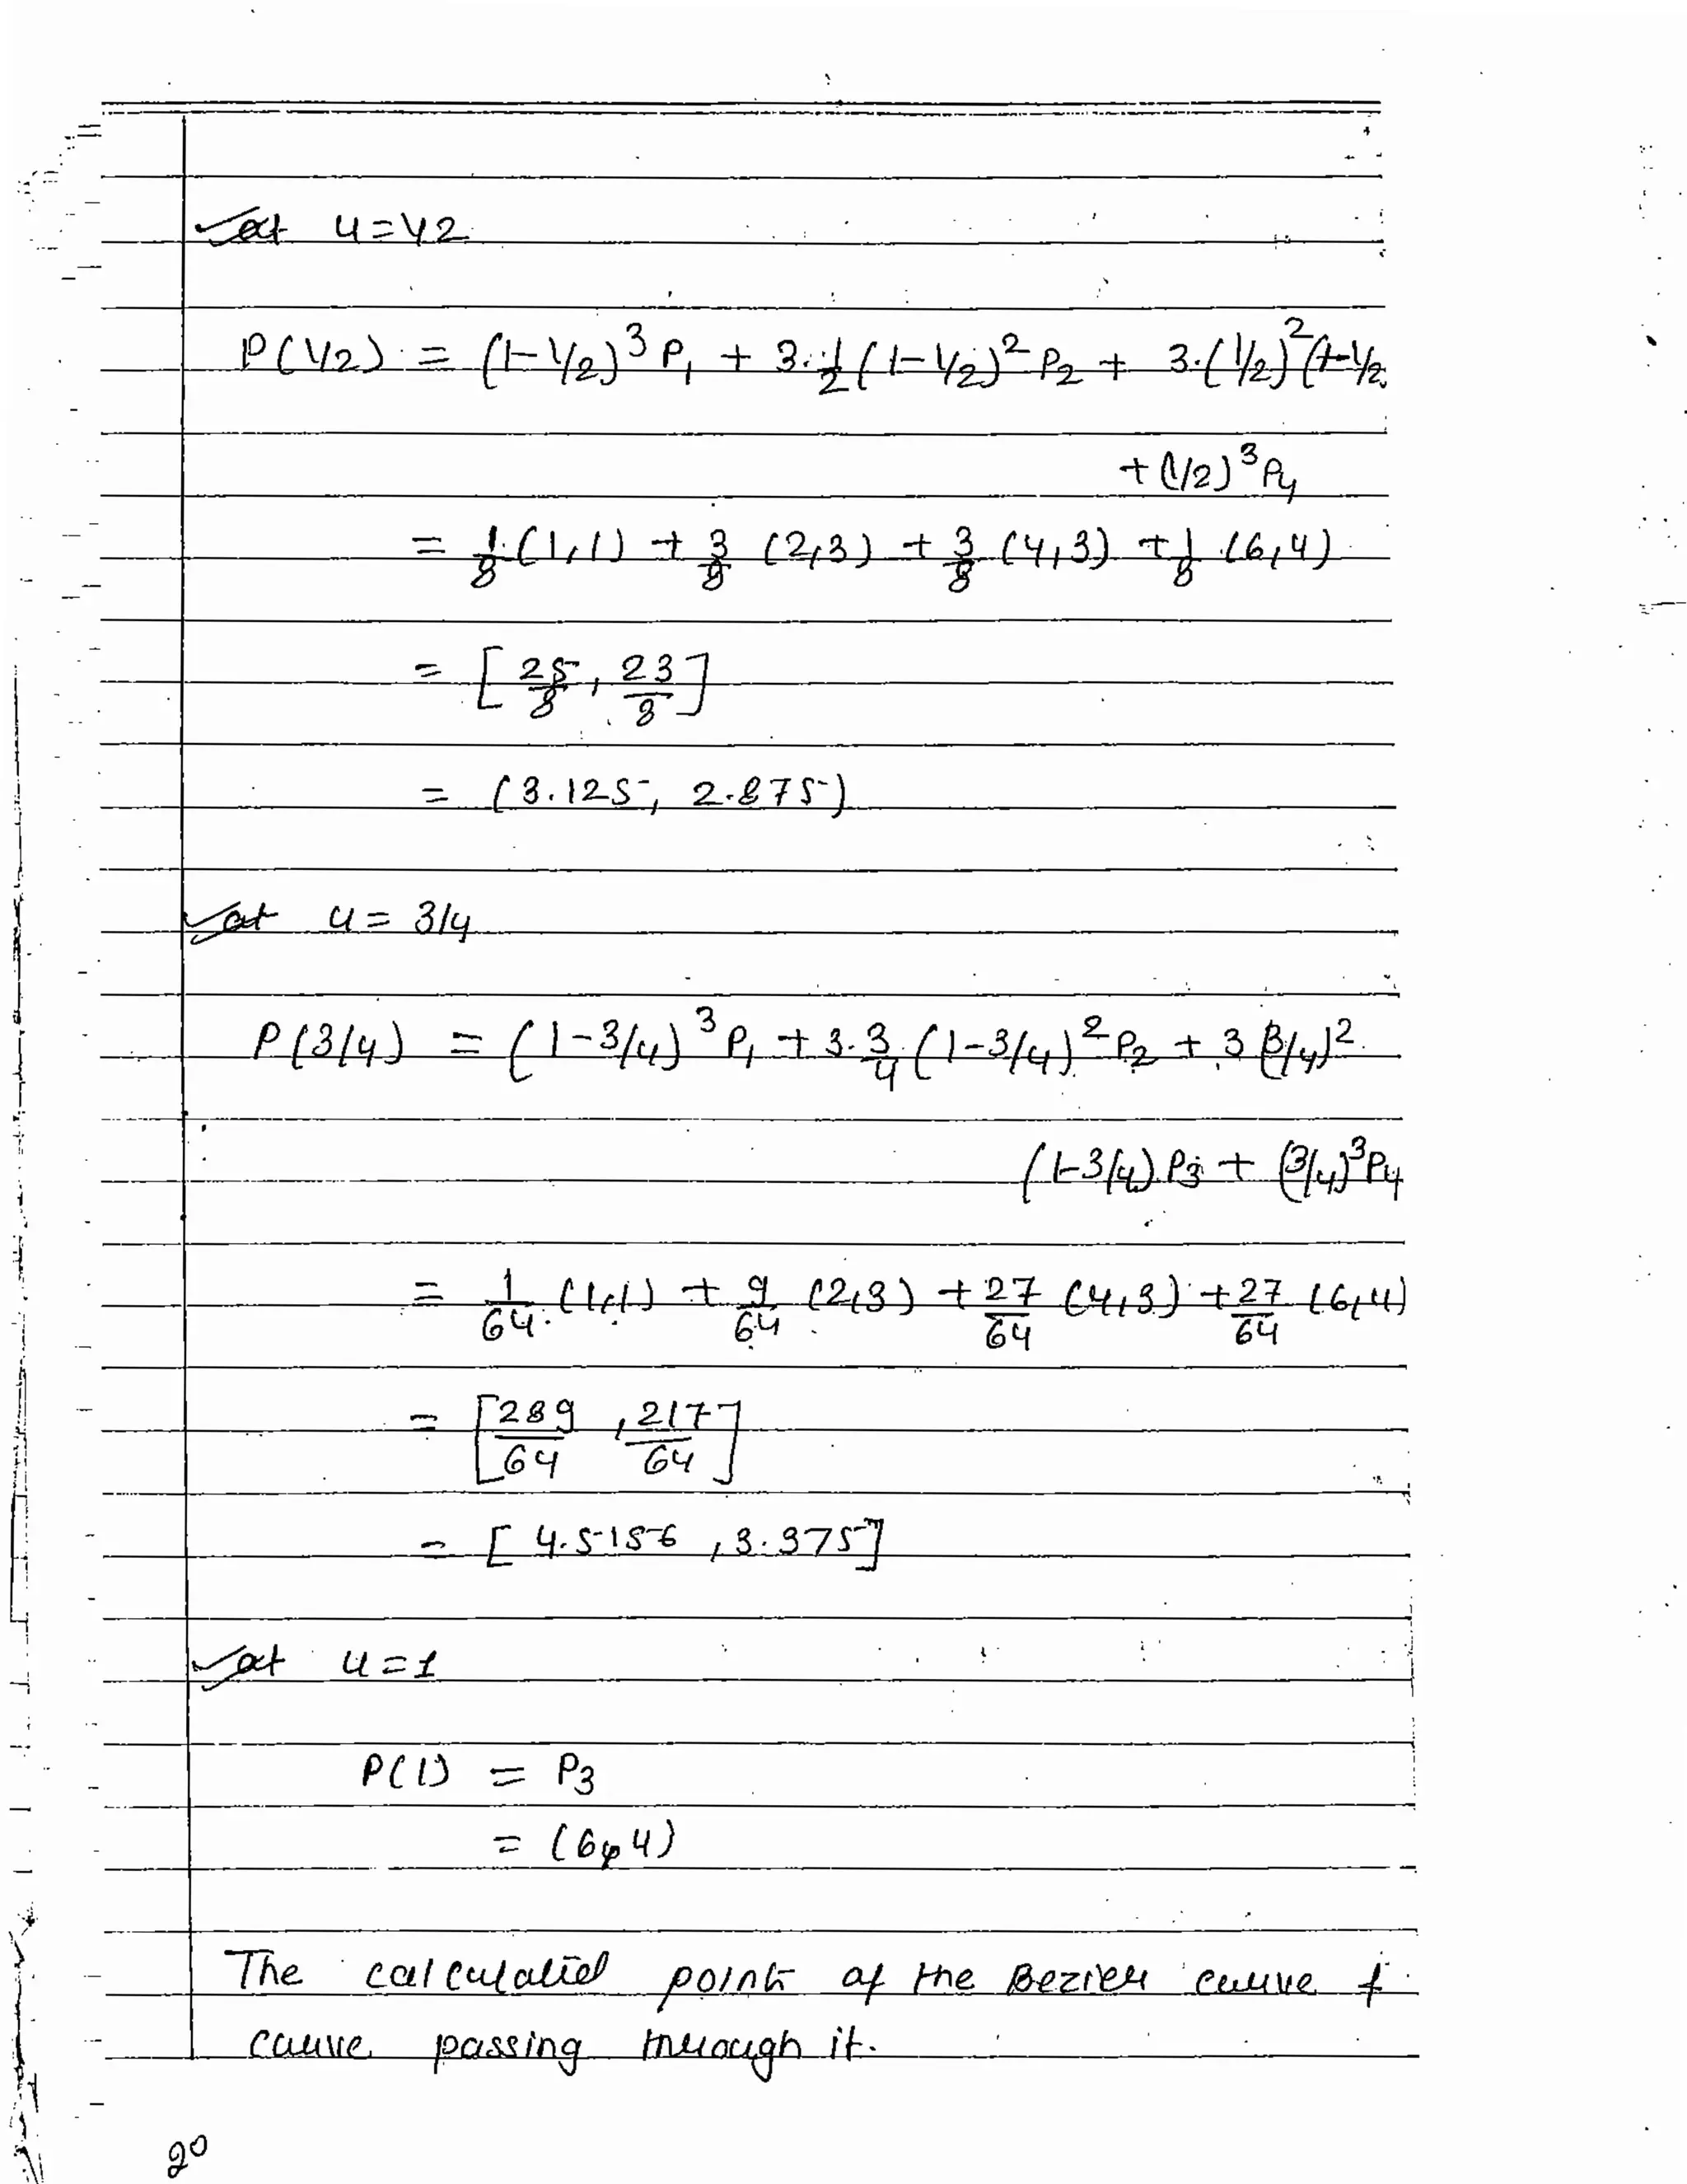 at u=1/2
P(1/2) = (1-1/2)³ P₁ + 3·1/2 (1-1/2)² P₂ + 3·(1/2)² (1-1/2
+ (1/2)³ P₄
= 1/8 (1,1) + 3/8 (2,3) + 3/8 (4,3) + 1/8 (6,4)
= [25/8, 23/8]
= (3.125, 2.875)
at u = 3/4
P(3/4) = (1-3/4)³ P₁ + 3·3/4 (1-3/4)² P₂ + 3 (3/4)²
(1-3/4) P₃ + (3/4)³ P₄
= 1/64 (1,1) + 9/64 (2,3) + 27/64 (4,3) + 27/64 (6,4)
= [289/64, 217/64]
= [4.5156, 3.375]
at u=1
P(1) = P₃
= (6,4)
The calculated points of the Bezier curve &
curve passing through it.
20